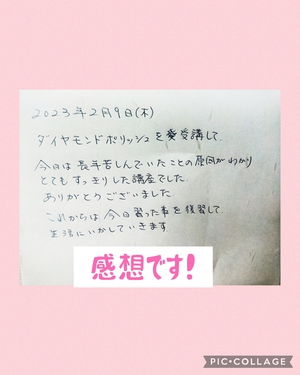 2023年2月9日(木)
ダイヤモンドポリッシュを受講して
今日は長年苦しんでいたことの原因がわかり
とてもすっきりした講座でした。
ありがとうございました。
これからは今日習った事を復習して
生活にいかしていきます
感想です!
PIC•COLLAGE